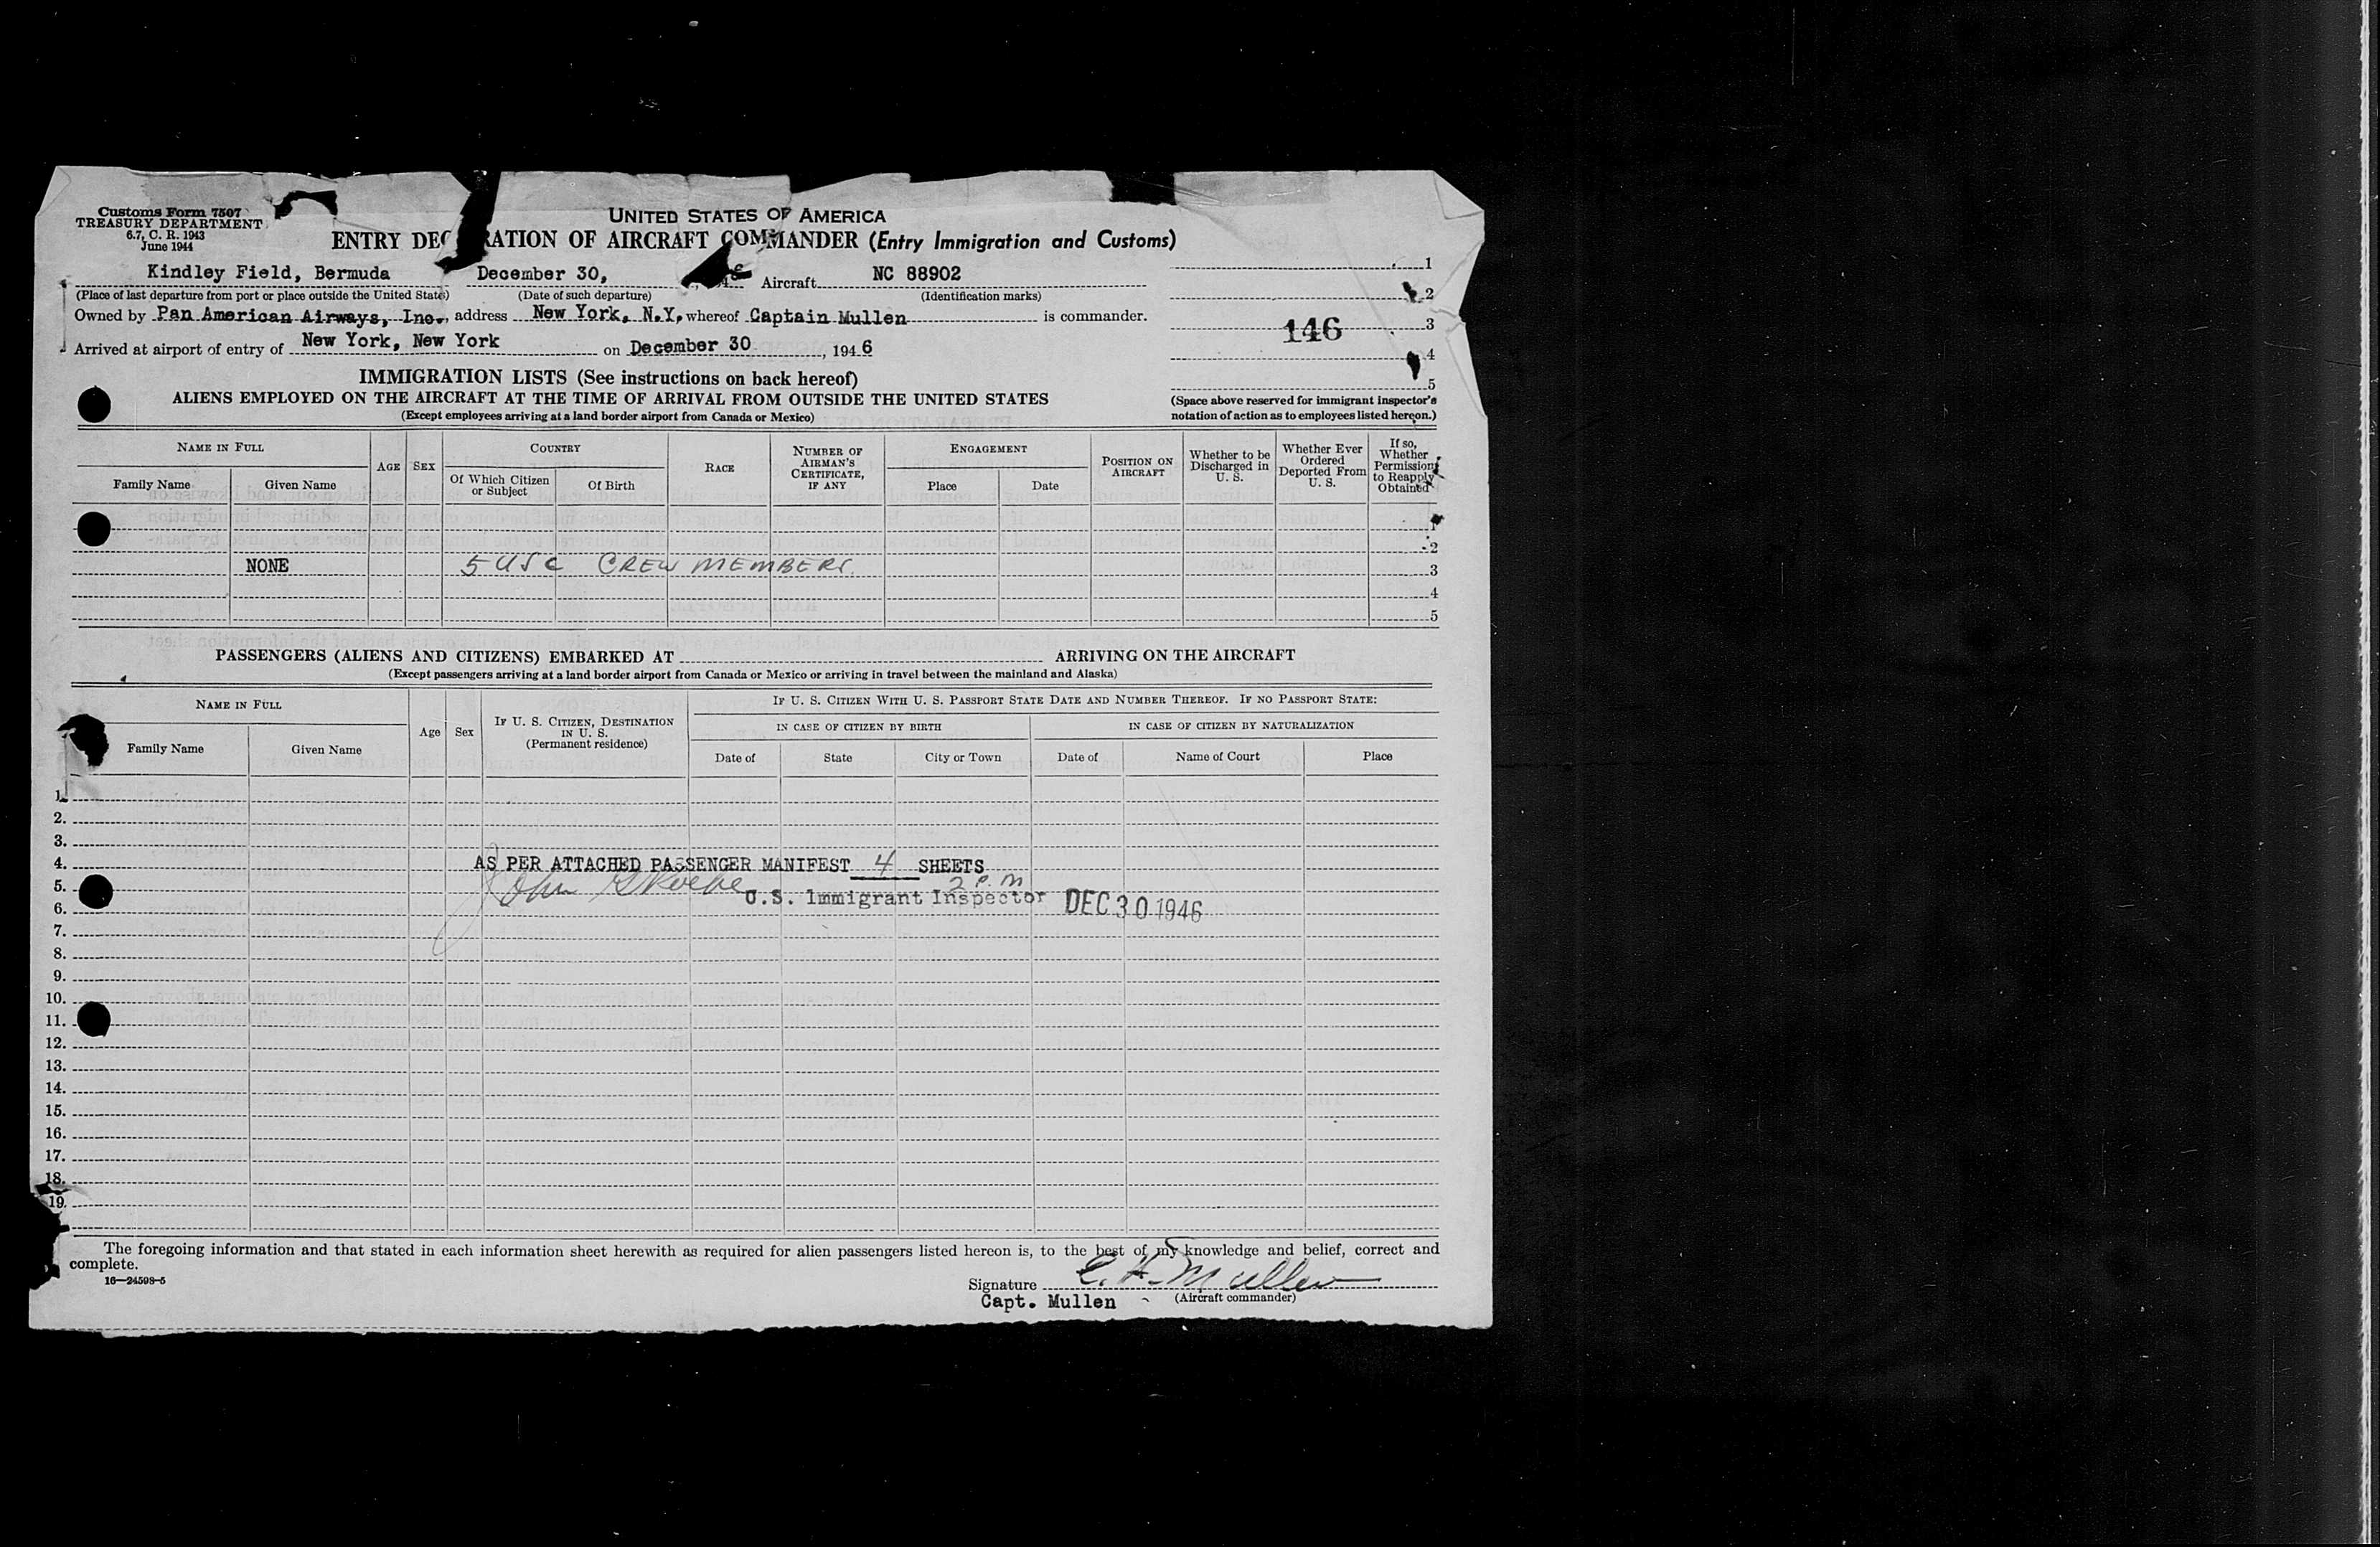 Customs Form 7507
TREASURY DEPARTMENT
6.7, C. R. 1943
June 1944
UNITED STATES OF AMERICA
ENTRY DEC RATION OF AIRCRAFT COMMANDER (Entry Immigration and Customs)
Kindley Field, Bermuda December 30, Aircraft NC 88902
(Place of last departure from port or place outside the United States) (Date of such departure) (Identification marks)
Owned by Pan American Airways, Inc., address New York, N.Y. whereof Captain Mullen is commander.
Arrived at airport of entry of New York, New York on December 30, 1946
1
2
146 3
4
5
(Space above reserved for immigrant inspector's
notation of action as to employees listed hereon.)
IMMIGRATION LISTS (See instructions on back hereof)
ALIENS EMPLOYED ON THE AIRCRAFT AT THE TIME OF ARRIVAL FROM OUTSIDE THE UNITED STATES
(Except employees arriving at a land border airport from Canada or Mexico)
NAME IN FULL
Family Name Given Name
AGE SEX
COUNTRY
Of Which Citizen or Subject Of Birth
RACE
NUMBER OF AIRMAN'S CERTIFICATE, IF ANY
ENGAGEMENT
Place Date
POSITION ON AIRCRAFT
Whether to be Discharged in U. S.
Whether Ever Ordered Deported From U. S.
If so, Whether Permission to Reapply Obtained
1
2
NONE 5 USC CREW MEMBERS. 3
4
5
PASSENGERS (ALIENS AND CITIZENS) EMBARKED AT ARRIVING ON THE AIRCRAFT
(Except passengers arriving at a land border airport from Canada or Mexico or arriving in travel between the mainland and Alaska)
NAME IN FULL
Family Name Given Name
Age Sex
IF U. S. CITIZEN, DESTINATION IN U. S.
(Permanent residence)
IF U. S. CITIZEN WITH U. S. PASSPORT STATE DATE AND NUMBER THEREOF. IF NO PASSPORT STATE:
IN CASE OF CITIZEN BY BIRTH IN CASE OF CITIZEN BY NATURALIZATION
Date of State City or Town Date of Name of Court Place
1.
2.
3.
4. AS PER ATTACHED PASSENGER MANIFEST 4 SHEETS
5. John 2 P.M
6. U.S. Immigrant Inspector DEC 30 1946
7.
8.
9.
10.
11.
12.
13.
14.
15.
16.
17.
18.
19.
The foregoing information and that stated in each information sheet herewith as required for alien passengers listed hereon is, to the best of my knowledge and belief, correct and
complete.
16—24598-5
Signature C. H. Mullen
Capt. Mullen (Aircraft commander)